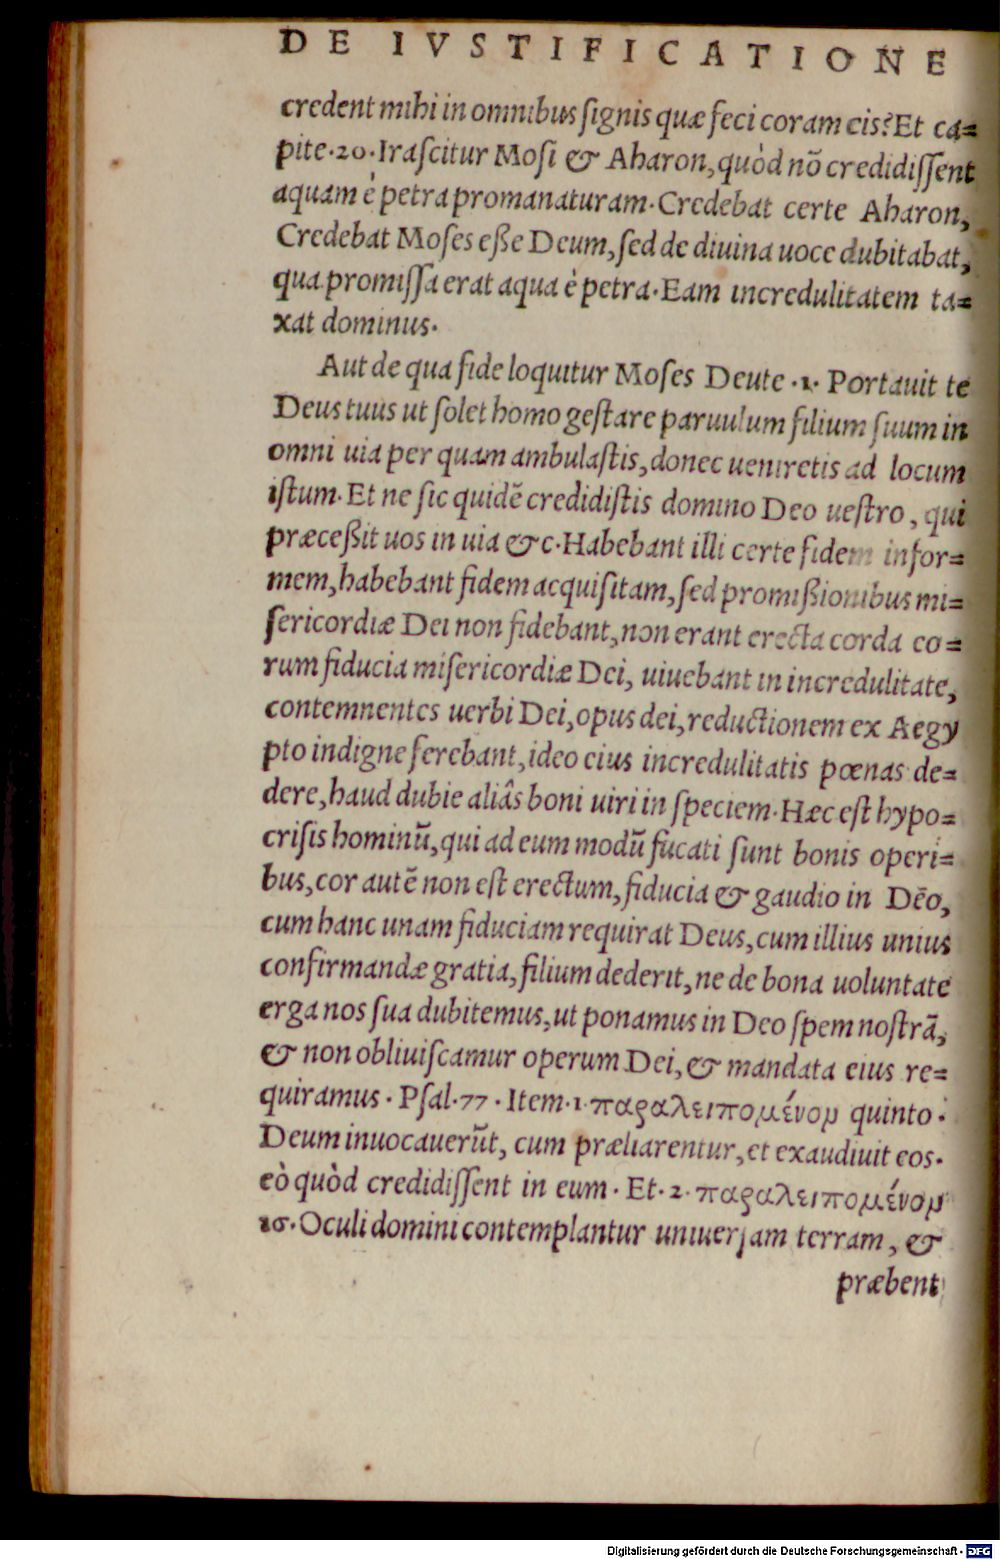 DE IVSTIFICATIONE
credent mihi in omnibus ſignis quæ feci coram eis? Et ca=
pite.20. Iraſcitur Moſi & Aharon, quòd nō credidiſſent
aquam è petra promanaturam. Credebat certe Aharon,
Credebat Moſes eße Deum, ſed de diuina uoce dubitabat,
qua promiſſa erat aqua è petra. Eam incredulitatem ta=
xat dominus.
Aut de qua fide loquitur Moſes Deute .1. Portauit te
Deus tuus ut ſolet homo geſtare paruulum filium ſuum in
omni uia per quam ambulaſtis, donec ueniretis ad locum
iſtum. Et ne ſic quidē credidiſtis domino Deo ueſtro, qui
præceßit uos in uia &c. Habebant illi certe fidem infor=
mem, habebant fidem acquiſitam, ſed promißionibus mi=
ſericordiæ Dei non fidebant, non erant erecta corda eo=
rum fiducia miſericordiæ Dei, uiuebant in incredulitate,
contemnentes uerbi Dei, opus dei, reductionem ex Aegy
pto indigne ferebant, ideo eius incredulitatis pœnas de=
dere, haud dubie aliâs boni uiri in ſpeciem. Hæc eſt hypo=
criſis hominū, qui ad eum modū fucati ſunt bonis operi=
bus, cor autē non eſt erectum, fiducia & gaudio in Dēo,
cum hanc unam fiduciam requirat Deus, cum illius unius
confirmandæ gratia, filium dederit, ne de bona uoluntate
erga nos ſua dubitemus, ut ponamus in Deo ſpem noſtrā,
& non obliuiſcamur operum Dei, & mandata eius re=
quiramus. Pſal.77. Item.1. παραλειπομένον quinto.
Deum inuocauerūt, cum præliarentur, et exaudiuit eos.
eò quòd credidiſſent in eum. Et.2. παραλειπομένον
16. Oculi domini contemplantur uniuerſam terram, &
præbent
Digitalisierung gefördert durch die Deutsche Forschungsgemeinschaft - DFG